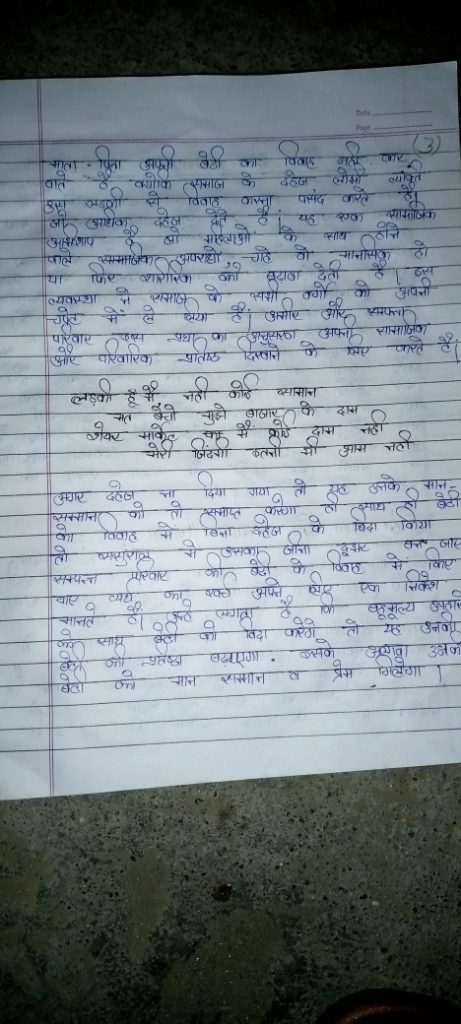 Date
Page
(3)
माता - पिता अपनी बेटी का विवाह नही कर
पाते है क्योंकि समाज के दहेज लोभी व्यक्ति
उस लड़की से विवाह करना पसंद करते है।
जो अधिक दहेज देते है। यह एक सामाजिक
अभिशाप है जो महिलाओ के साथ होने
वाले सामाजिक अपराधो, चाहे वे मानसिक हो
या फिर शारीरिक को बढावा देती है। इस
व्यवस्था ने समाज के सभी वर्गो को अपनी
चपेट में ले लिया है। अमीर और सम्पन्न
परिवार इस प्रथा का अनुसरण अपनी सामाजिक
और परिवारिक प्रतिष्ठा दिखाने के लिए करते है।
लड़की हूँ मैं, नही कोई सामान
मत बेचो मुझे बाजार के दाम
शेयर मार्केट का मैं कोई दाम नही
मेरी जिंदगी इतनी भी आम नही
अगर दहेज ना दिया गया तो यह उनके मान-
सम्मान को तो समाप्त करेगा ही साथ ही बेटी
का विवाह में बिना दहेज के बिदा किया
तो ससुराल में उसका जीना दूभर बन जाए
सम्पन्न परिवार की बेटी के विवाह में किए
गए व्यय का अपने लिए एक निवेश
मानते है। उन्हे लगता है कि बहुमूल्य उपहारो
के साथ बेटी को विदा करेगे तो यह उनकी
बेटी की प्रतिष्ठा बढाएगा. इसके अलावा उनकी
बेटी को मान सम्मान व प्रेम मिलेगा।